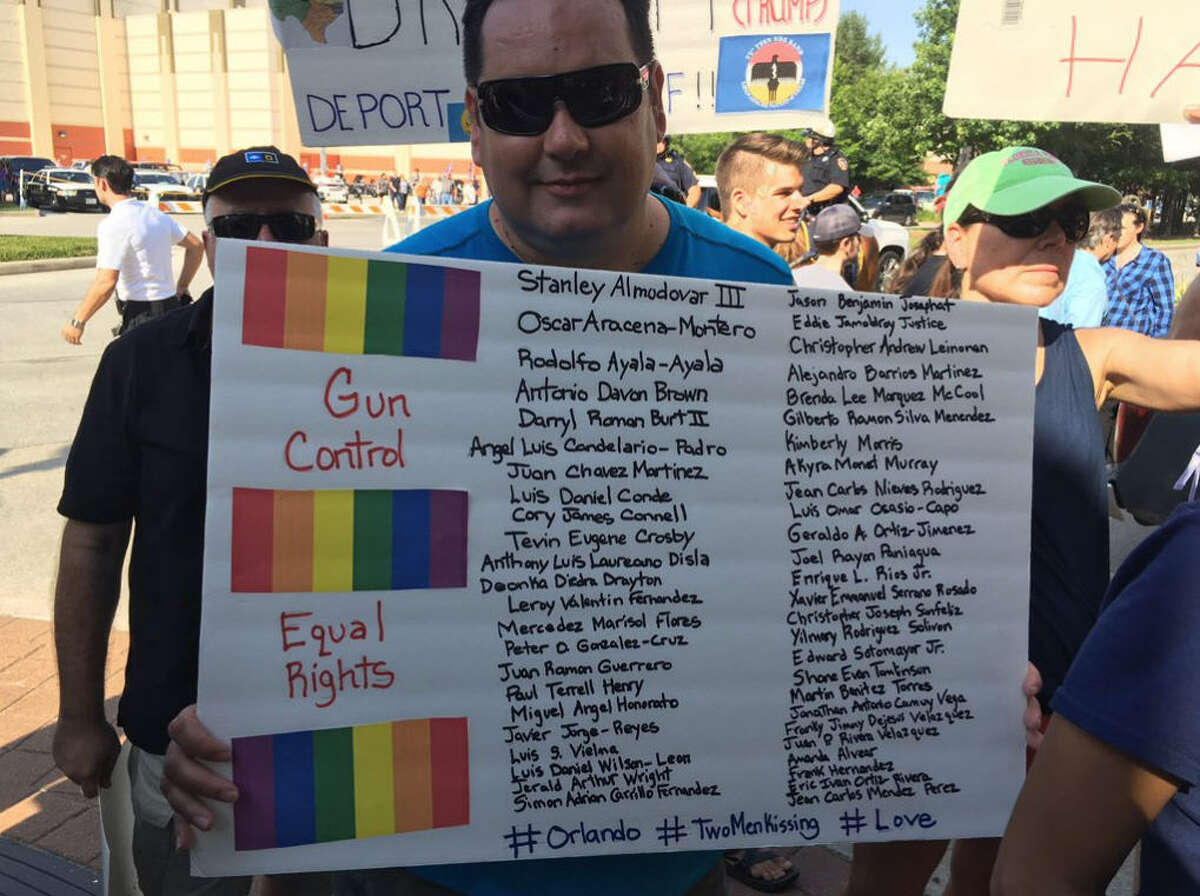 (TRUMP)
DEPORT
F!!
HA
Gun
Control
Equal
Rights
Stanley Almodovar III
Oscar Aracena-Montero
Rodolfo Ayala-Ayala
Antonio Davon Brown
Darryl Roman Burt II
Angel Luis Candelario-Padro
Juan Chavez Martinez
Luis Daniel Conde
Cory James Connell
Tevin Eugene Crosby
Anthony Luis Laureano Disla
Deonka Diedra Drayton
Leroy Valentin Fernandez
Mercedez Marisol Flores
Peter O. Gonzalez-Cruz
Juan Ramon Guerrero
Paul Terrell Henry
Miguel Angel Honorato
Javier Jorge-Reyes
Luis S. Vielma
Luis Daniel Wilson-Leon
Jerald Arthur Wright
Simon Adrian Carrillo Fernandez
Jason Benjamin Josaphat
Eddie Jamoldroy Justice
Christopher Andrew Leinonan
Alejandro Barrios Martinez
Brenda Lee Marquez McCool
Gilberto Ramon Silva Menendez
Kimberly Morris
Akyra Monet Murray
Jean Carlos Nieves Rodriguez
Luis Omar Ocasio-Capo
Geraldo A. Ortiz-Jimenez
Joel Rayon Paniagua
Enrique L. Rios Jr.
Xavier Emmanuel Serrano Rosado
Christopher Joseph Sanfeliz
Yilmary Rodriguez Solivan
Edward Sotomayor Jr.
Shane Evan Tomlinson
Martin Benitez Torres
Jonathan Antonio Camuy Vega
Franky Jimmy Dejesus Velazquez
Juan P Rivera Velazquez
Amanda Alvear
Frank Hernandez
Eric Ivan Ortiz-Rivera
Jean Carlos Mendez Perez
#Orlando #TwoMenKissing #Love